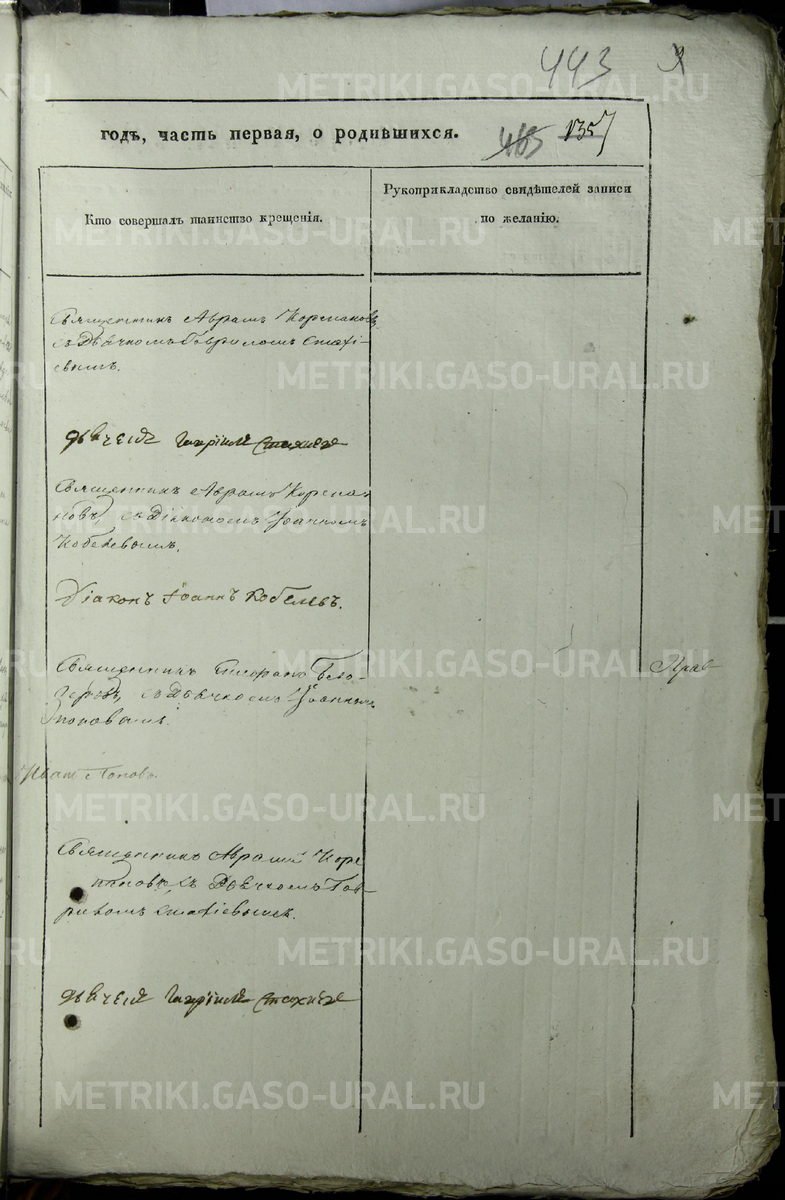 443
годъ, часть первая, о родившихся.
463 1357
Кто совершалъ таинство крещенія.
Рукоприкладство свидѣтелей записи
по желанію.
Священникъ Аврамъ Корепановъ
съ Дьячкомъ Гавриломъ Стахі-
евымъ.
дьячекъ Гавріилъ Стахиевъ
Священникъ Аврамъ Корепа-
новъ, съ Діакономъ Іоанномъ
Кобелевымъ.
Діаконъ Іоаннъ Кобелевъ.
Священникъ Бело-
зеровъ, съ Дьячкомъ Іоанномъ
Поповымъ.
Иванъ Поповъ.
Священникъ Аврамій Коре-
пановъ, съ Дьячкомъ Гав-
риломъ Стахіевымъ.
дьячекъ Гавріилъ Стахиевъ
METRIKI.GASO-URAL.RU